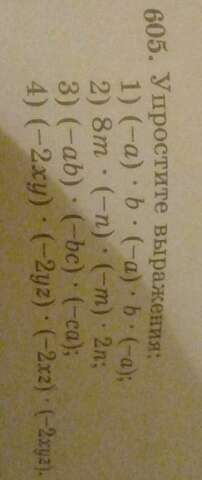 605. Упростите выражения:
1) (−a) · b · (−a) · b · (−a);
2) 8m · (−n) · (−m) · 2n;
3) (−ab) · (−bc) · (−ca);
4) (−2xy) · (−2yz) · (−2xz) · (−2xyz).